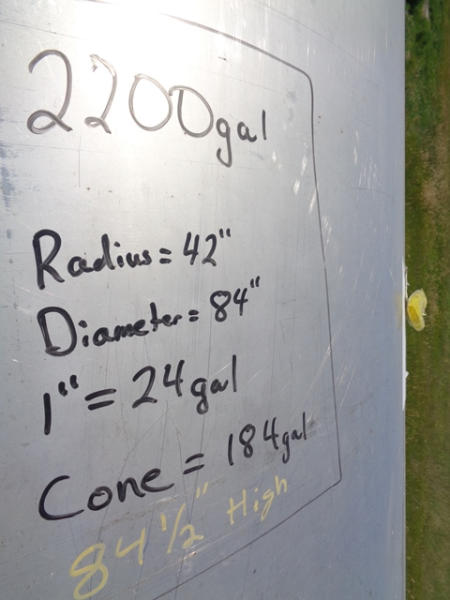 2200gal
Radius = 42"
Diameter = 84"
1" = 24 gal
Cone = 184gal
84 1/2" High